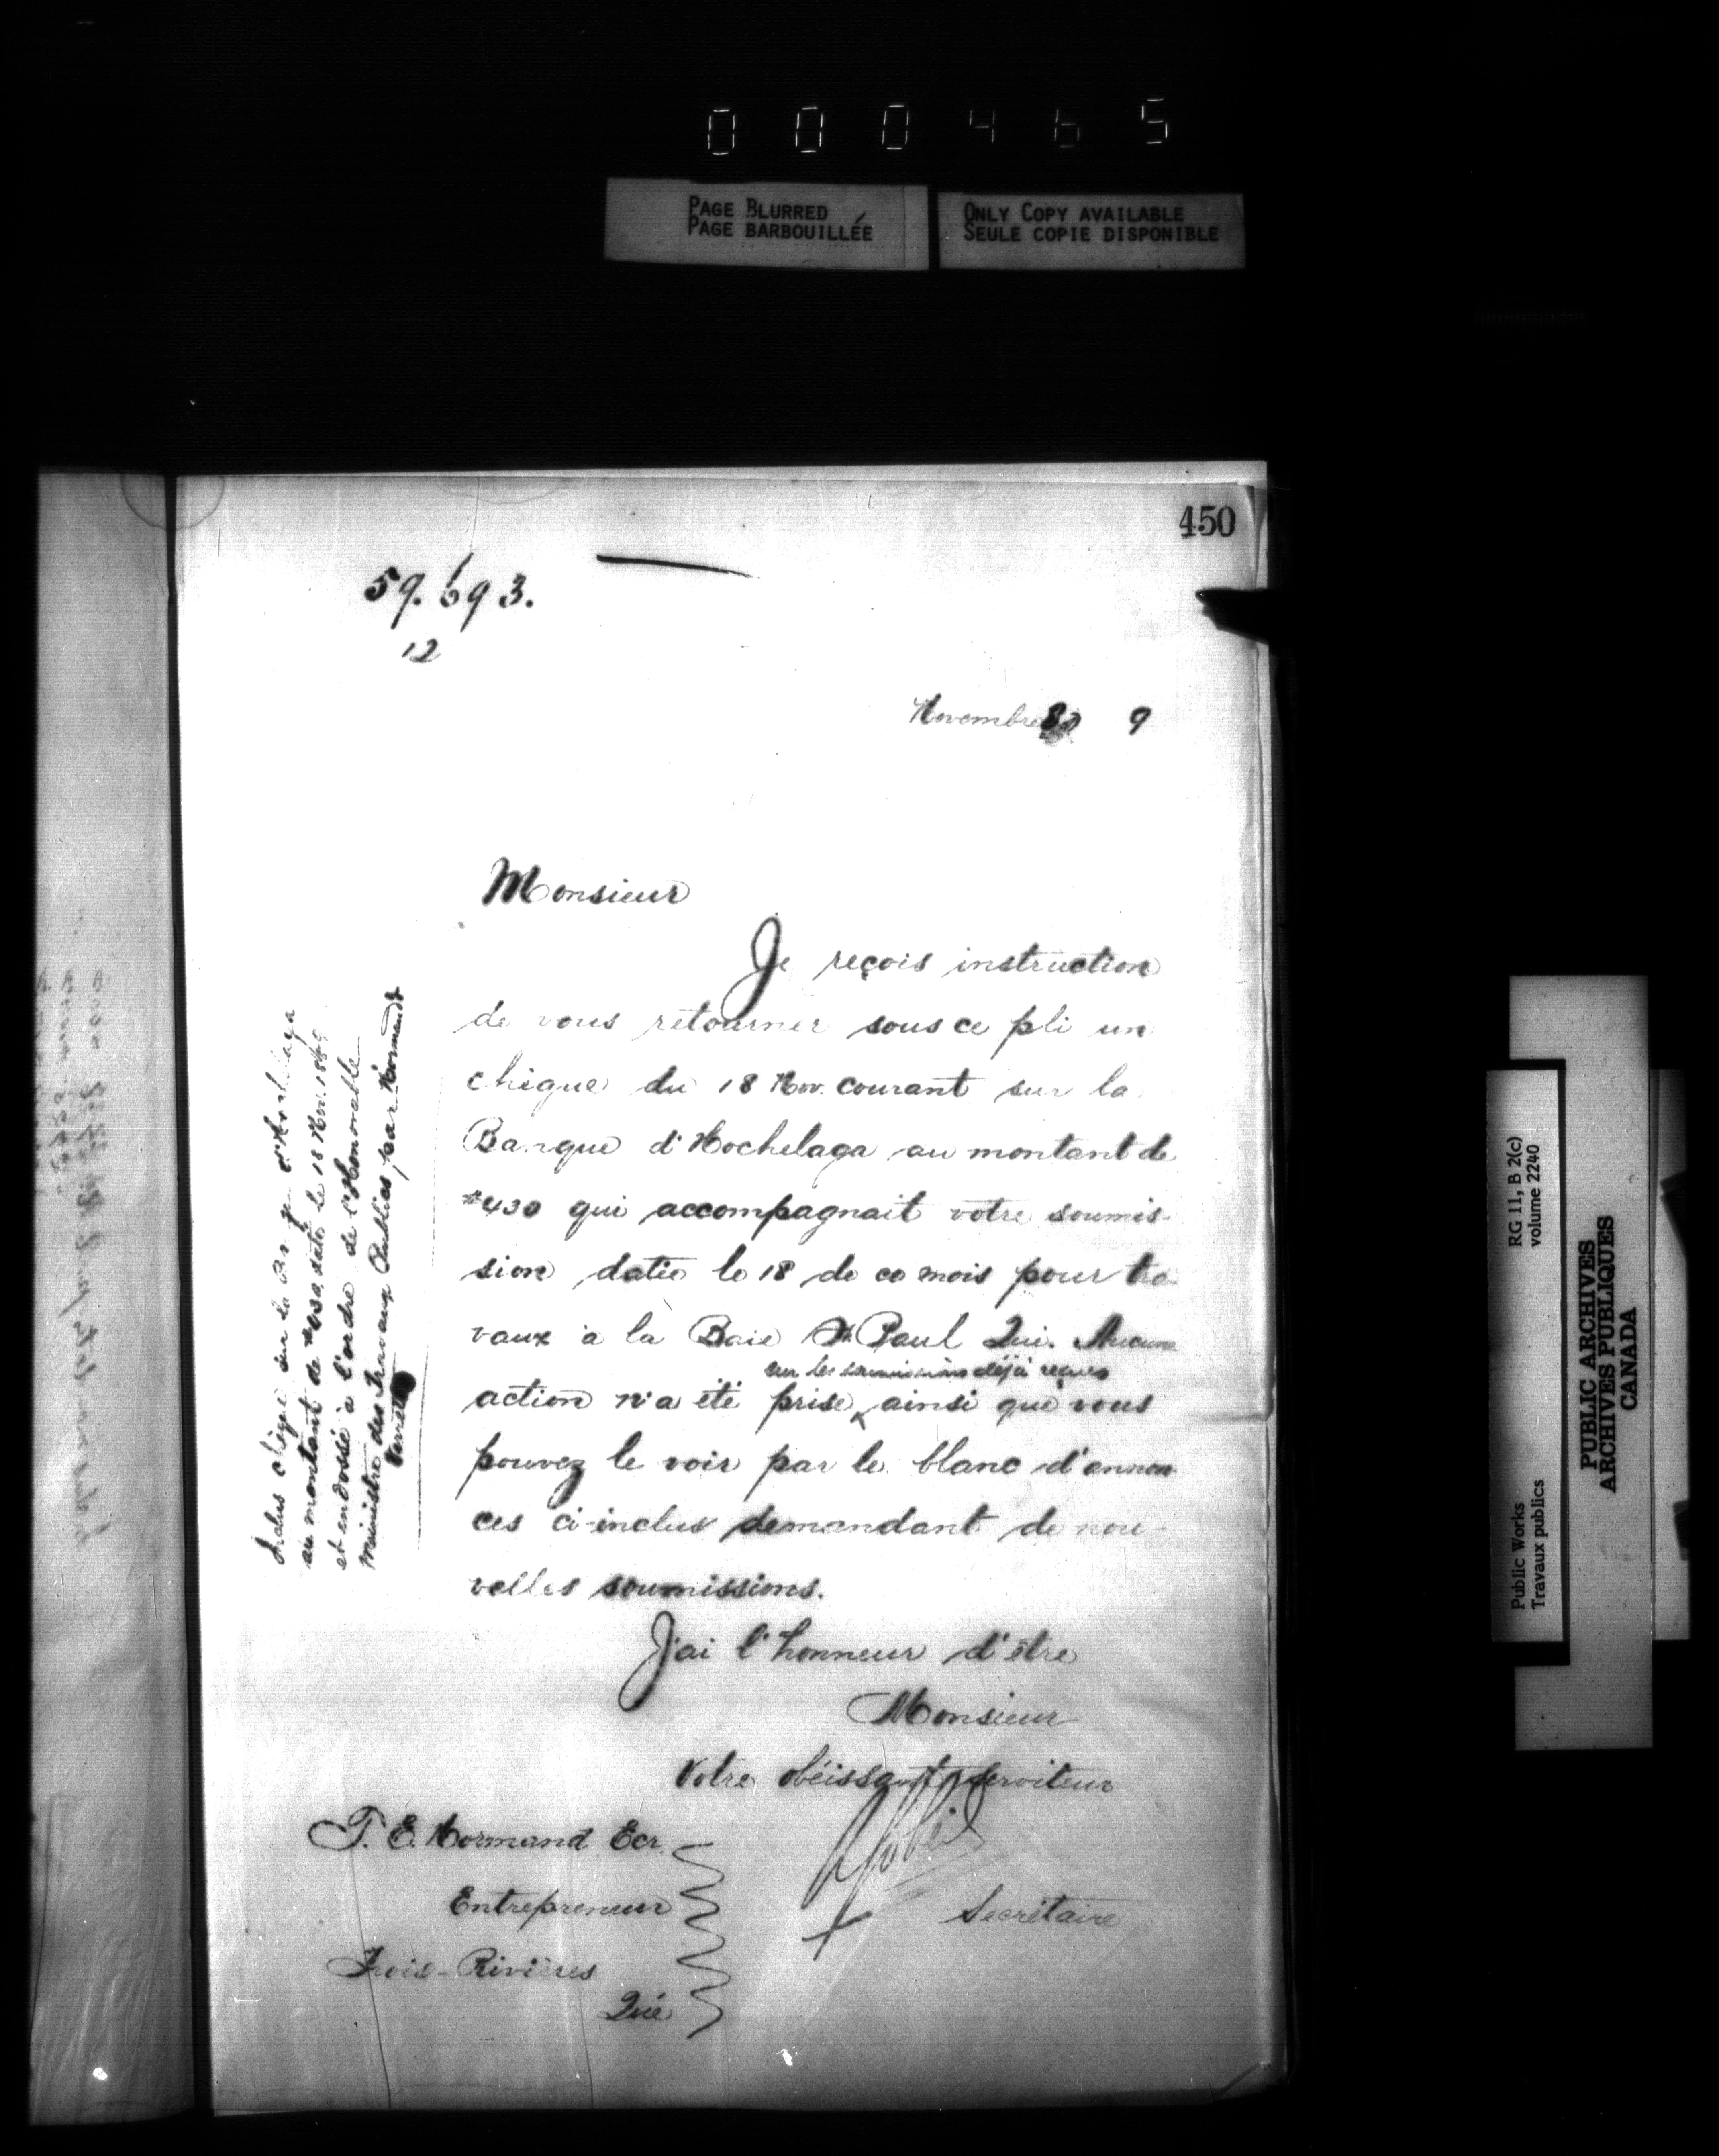 000465
PAGE BLURRED
PAGE BARBOUILLÉE
ONLY COPY AVAILABLE
SEULE COPIE DISPONIBLE
450
59.693.
12
Novembre 9
Monsieur
Je reçois instruction
de vous retourner sous ce pli un
chèque du 18 Nov. courant sur la
Banque d'Hochelaga au montant de
$430 qui accompagnait votre soumis-
sion datée le 18 de ce mois pour tra-
vaux à la Baie St. Paul Qué. Aucune
sur les soumissions déjà reçues
action n'a été prise ainsi que vous
pouvez le voir par le blanc d'annon-
ces ci-inclus demandant de nou-
velles soumissions.
J'ai l'honneur d'être
Monsieur
Votre obéissant serviteur
Secrétaire
T. E. Normand Ecr.
Entrepreneur
Trois-Rivières
Qué
Inclus chèque sur la Banque d'Hochelaga
au montant de $430 daté le 18 Nov. 1889
et endossé à l'ordre de l'Honorable
Ministre des Travaux Publics par Normand
Public Works
Travaux publics
RG 11, B 2(c)
volume 2240
PUBLIC ARCHIVES
ARCHIVES PUBLIQUES
CANADA